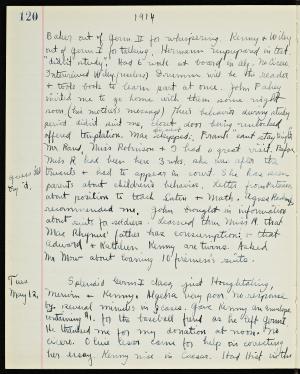 120
1914
Baker out of Germ II for whispering. Kenny & Wiley
out of Germ I for talking. Hermann unprepared in test
"didn't study". Had to work at board in alg.
Interviewed Wiley Drummin will be the reader
& took book to learn part at once. John Fahey
invited me to go home with them some night
soon (his mother's message) Thus behavior during study
period didn't suit me, class a pen being snatched
offered temptation. Mae whipped.
Mr Rand, Miss Robinson & I had a great visit.
Miss R had been here 3 wks, she was after the
truants & had to appear in court. She has seen
parents about children's behavior. Letter from
about position to teach Latin & Math. Agnes
recommended me. John brought in information
about suit for soldiers. Learned thru Miss R that
Mae Rhymer's father has consumption; & that
Edward & Kathleen Kenny are twins. Asked
Mr Mow about loaning 10 firemen's suits.
Tues
May 12,
Splendid Germ I class, just Houghtaling,
Merwin & Kenny. Algebra very poor, no response
by several minutes in 3 cases. Gave Kenny an envelope
containing $1. for the baseball field as he left Germ I
He thanked me for my donation at noon.
Olive Lester came for help in correcting
her essay. Kenny nice in Caesar. Had Hist